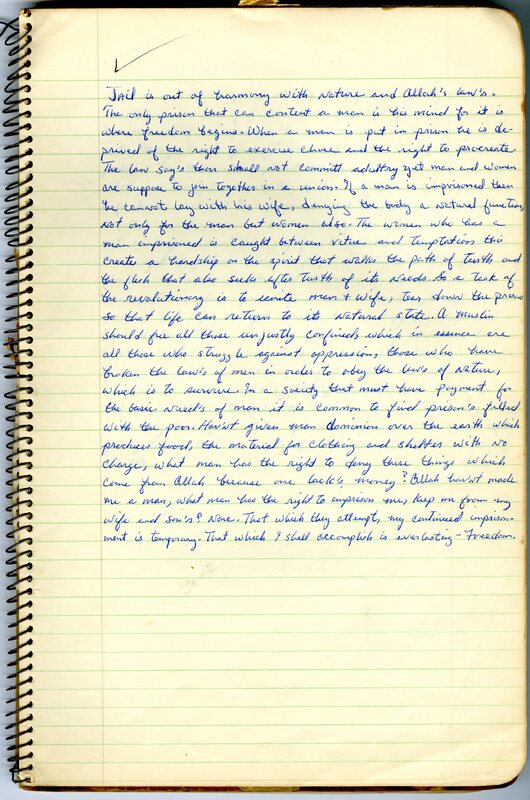 Jail is out of harmony with nature and Allah's law's.
The only prison that can content a man is his mind for it is
where freedom begins. When a man is put in prison he is de-
prived of the right to exercise and the right to procreate.
The law say's thou shall not committ adultry yet man and women
are suppose to join together in a union. If a man is imprisoned then
he cannot lay with his wife, denying the body a natural function,
not only for the man but women also. The women who has a
man imprisoned is caught between virtue and temptation this
creates a hardship on the spirit that walks the path of truth and
the flesh that also seeks after truth of its needs. So a task of
the revolutionary is to unite man + wife, tear down the prisons
so that life can return to its natural state. A muslim
should free all those unjustly confined, which in essence are
all those who struggle against oppression, those who have
broken the law's of men in order to obey the law's of nature,
which is to survive. In a society that must have payment for
the basic need's of man it is common to find prison's filled
with the poor. Hav'nt given man dominion over the earth which
produces food, the material for clothing and shelter with no
charge, what man has the right to deny these things which
come from Allah because one lack's money? Allah hav'nt made
me a man, what man has the right to imprison me, keep me from my
wife and son's? None. That which they attempt, my continued imprison-
ment is temporary. That which I shall accomplish is everlasting - Freedom.